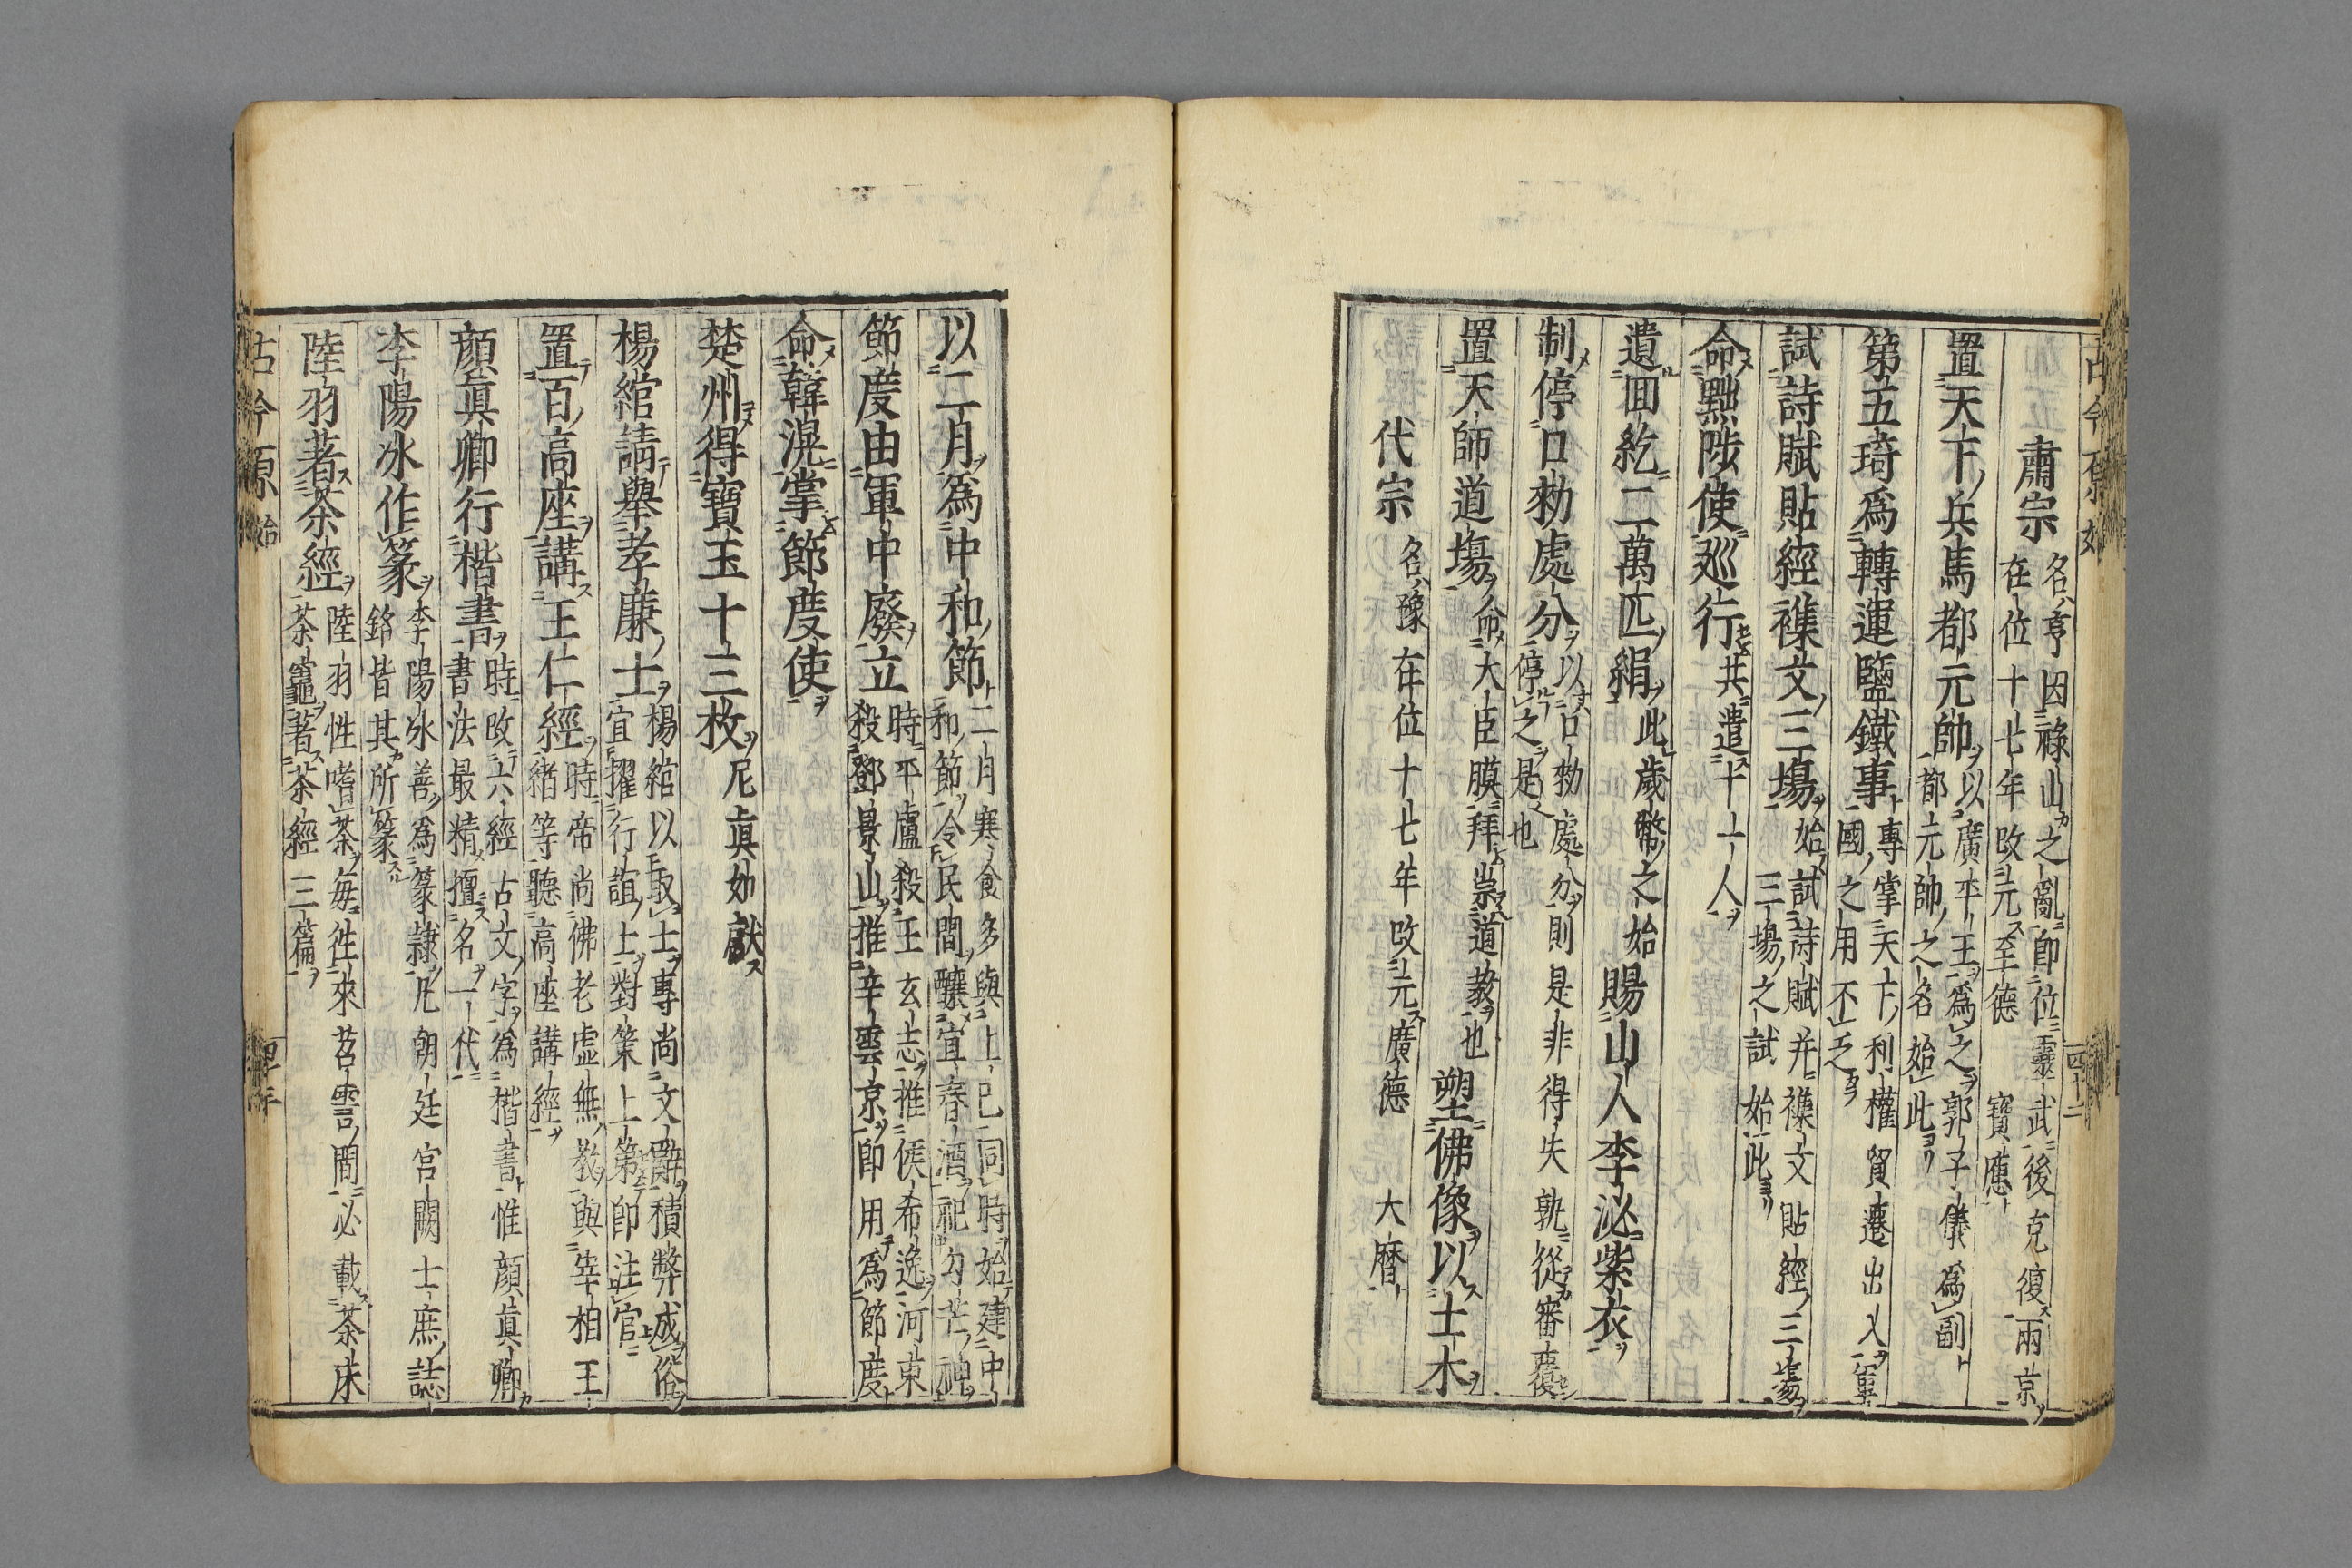 肅宗 名亨因祿山之亂卽位靈武後克復兩京
在位十七年改元至德 寶應
置天下兵馬都元帥 以廣平王爲之郭子儀爲副
都元帥之名始此
第五琦爲轉運鹽鐵事 專掌天下利權貿遷出入軍
國之用不乏
試詩賦貼經襍文三場 始試詩賦并襍文貼經三塲
三場之試始此
命黜陟使廵行 共遣十一人
遺回紇二萬匹絹 此歲幣之始 賜山人李泌紫衣
制停口勑處分 以口勑處分則是非得失孰從審覆
停之是也
置天師道塲 命大臣膜拜崇道教也 塑佛像以土木
代宗 名豫 在位十七年改元廣德 大曆
以二月爲中和節 二月寒食多與上巳同時始建中
和節令民間釀宜春酒祀勾芒神
節度由軍中廢立 時平盧殺王玄志推侯希逸河東
殺鄧景山推辛雲京卽用爲節度
命韓滉掌節度使
楚州得寶玉十三枚 尼眞如獻
楊綰請舉孝廉士 楊綰以取士專尚文辭積弊成俗
宜擢行誼上對策上第卽注官
置百高座講王仁經 時帝尚佛老虛無教與宰相王
縉等聽高座講經
顔眞卿行楷書 時改六經古文字爲楷書惟顔眞卿
書法最精擅名一代
李陽冰作篆 李陽冰善爲篆隷凡朝廷宮闕士庶誌
銘皆其所篆
陸羽著茶經 陸羽性嗜茶每徃來苕雲間必載茶床
茶竈著茶經三篇
古今原始